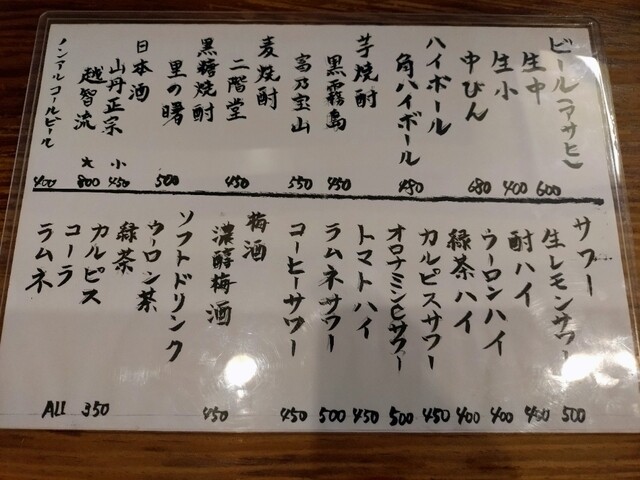 ビール（アサヒ）
生中 600
生小 400
中びん 680
ハイボール
角ハイボール 480
芋焼酎
黒霧島 450
富乃宝山 550
麦焼酎
二階堂 450
黒糖焼酎
里の曙 500
日本酒
山丹正宗 小 450
越智流 大 800
ノンアルコールビール 400
サワー
生レモンサワー 500
酎ハイ 400
ウーロンハイ 400
緑茶ハイ 400
カルピスサワー 450
オロナミンCサワー 500
トマトハイ 450
ラムネサワー 500
コーヒーサワー 450
梅酒
濃醇梅酒 450
ソフトドリンク
ウーロン茶
緑茶
カルピス
コーラ
ラムネ
ALL 350